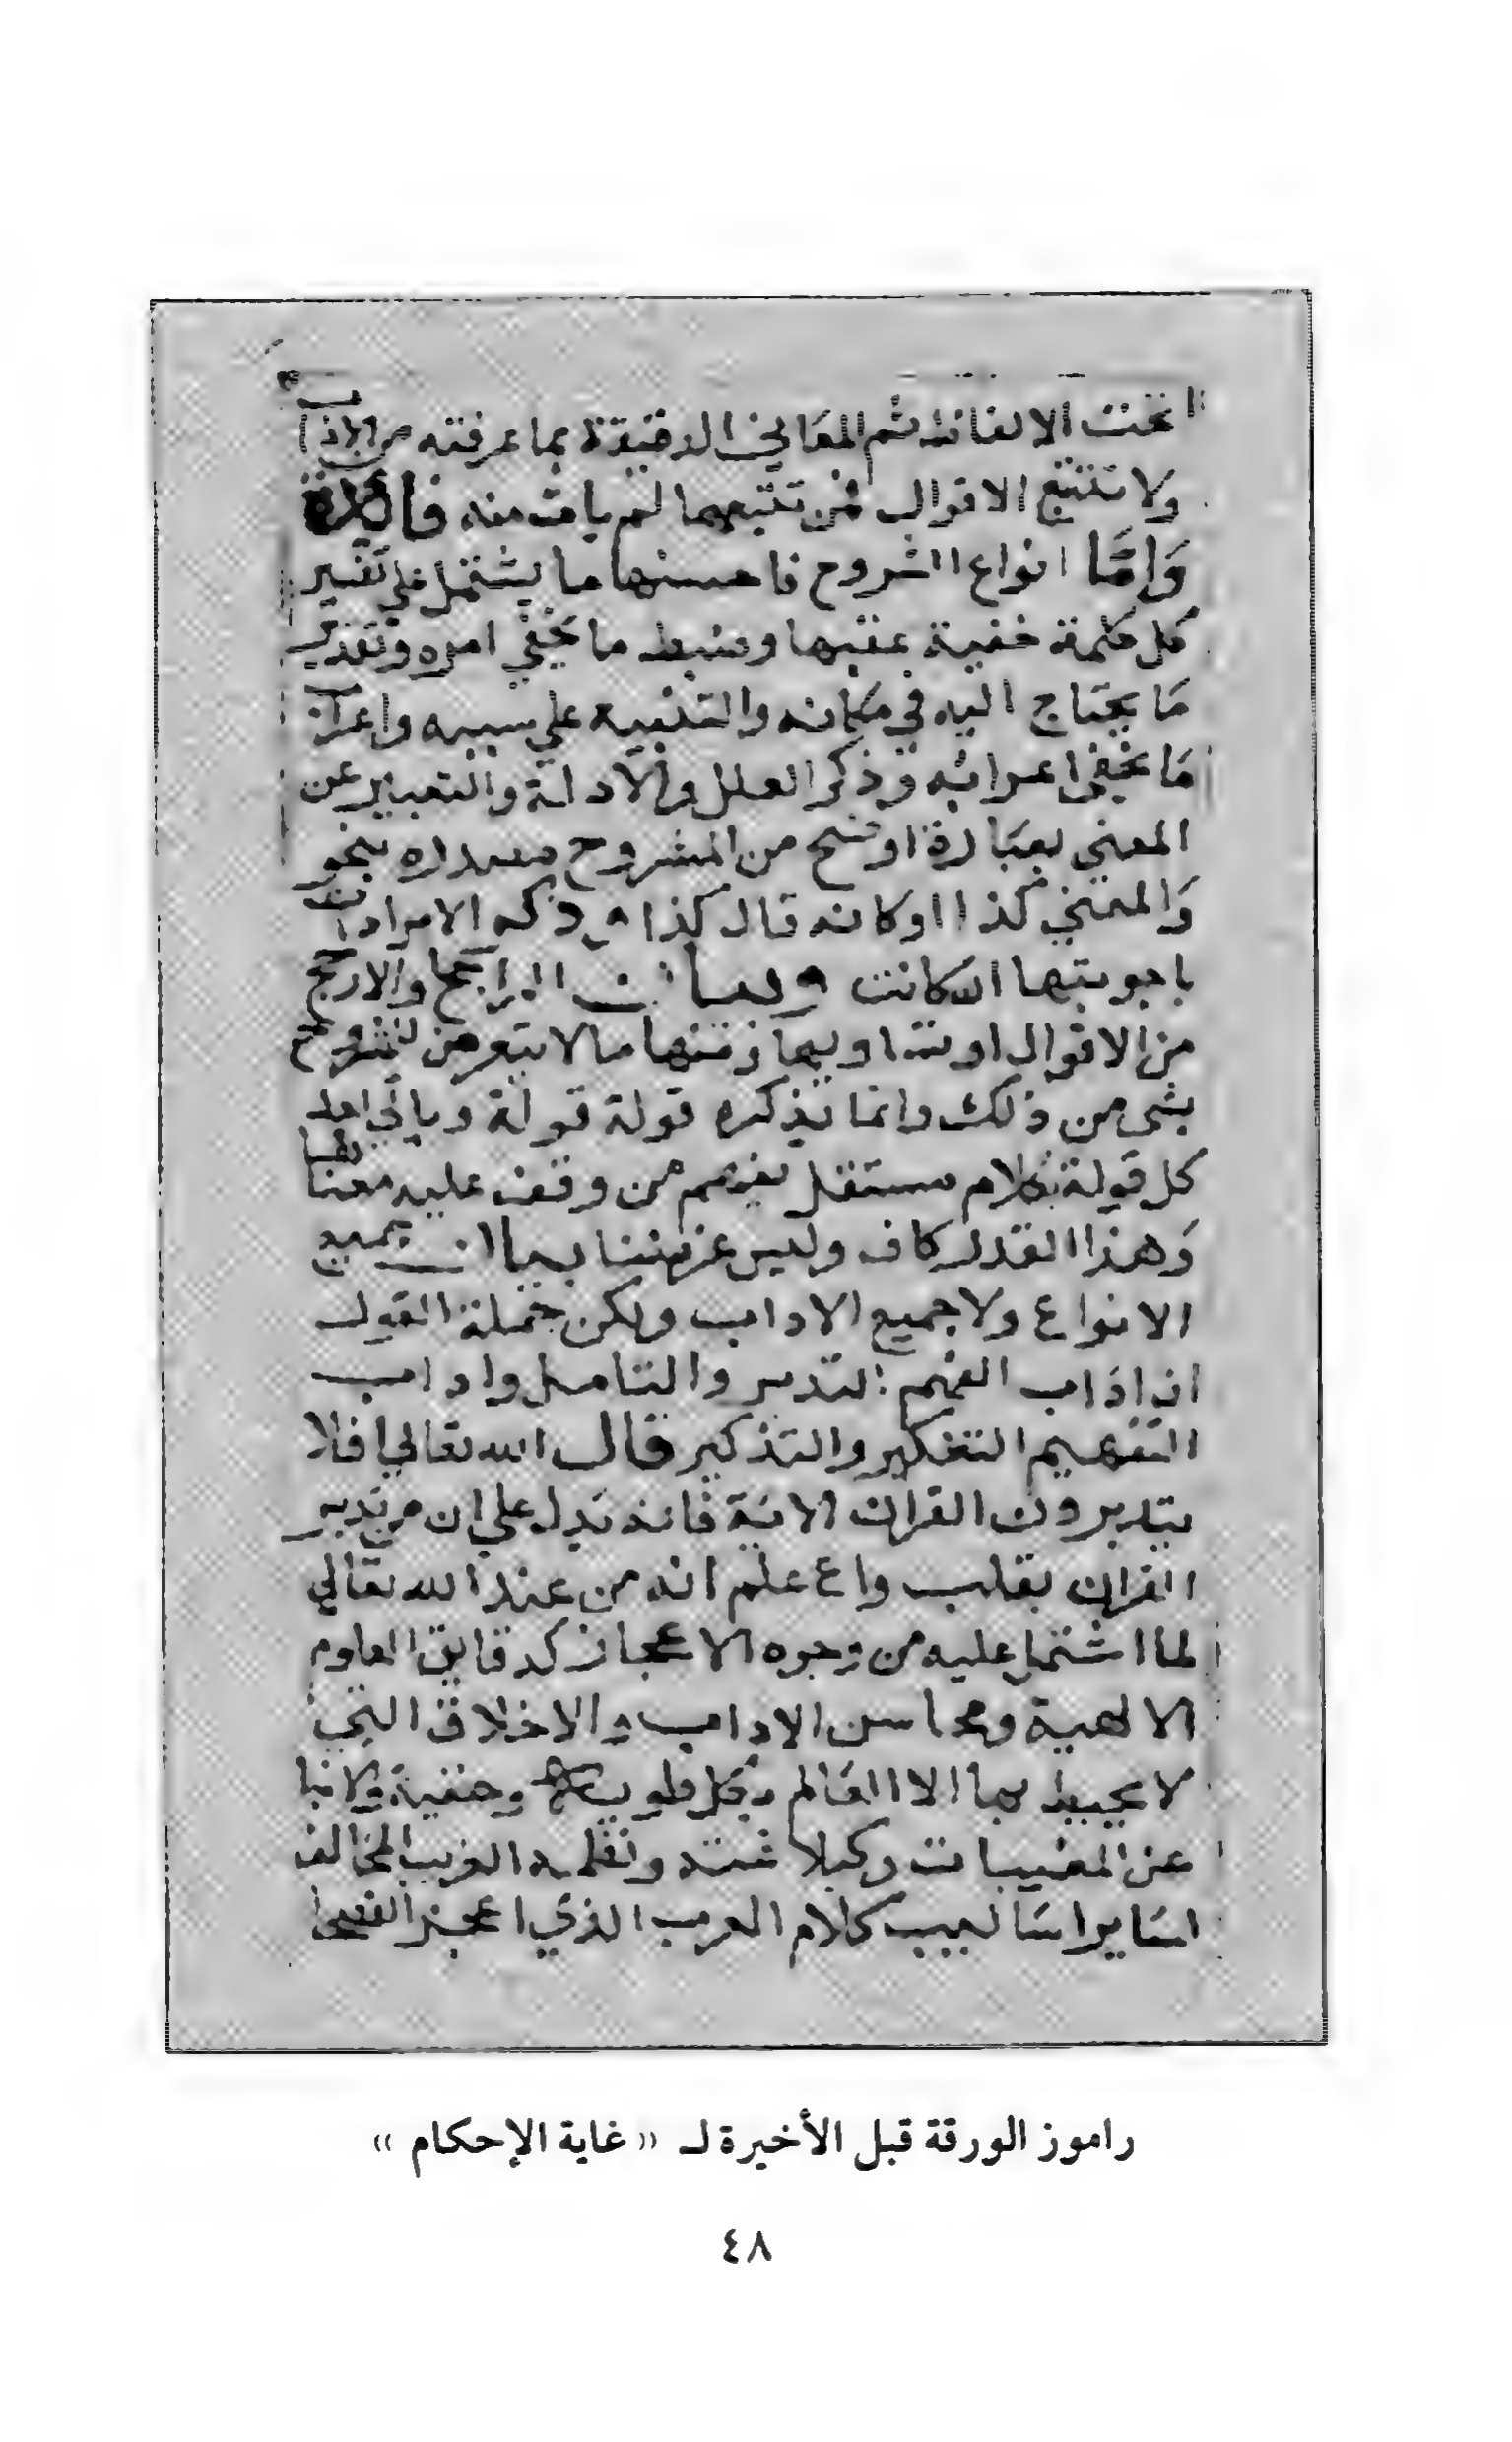 تحت الالفاظ ثم المعاني الدقيقة بما عرفته من
ولا تتتبع الاقوال فمن تتبعها لم يامت منه فايدة
وَامَّا انواع الشروح فاحسنها ما يشتمل علي تفسير
كل كلمة خفية عقبها وضبط ما يخفي امره وتقدير
مَا يحتاج اليه في مكانه والتنبيه علي سببه واعراب
مَا يخفي اعرابه وذكر العلل والادلة والتعبير عن
المعني بعبَارة اوضح من المشروح مصدرة بنحو
وَالمعني كذا اوكانه قال كذا وذكر الايرادات
باجوبتها ان كانت وبيان الراجح والارجح
من الاقوال او تساويها ومنها ما لا يتعرض للشروح
بشي من ذلك وانما يذكره قولة قولة وياتي علي
كل قولة بكلام مستقل يفهم من وقف عليه معناها
وَهذا القدر كاف وليس غرضنا بيان جميع
الانواع ولا جميع الاداب ولكن جملة القول
ان اداب الفهم التدبر والتامل واداب
التفهيم التفكير والتذكير قال الله تعالي افلا
يتدبرون القران الاية فانه يدل علي ان من تدبر
القران بقلب واع علم انه من عند الله تعالي
لما اشتمل عليه من وجوه الاعجاز كدقايق العلوم
الالهية ومحاسن الاداب والاخلاق التي
لا يحيط بها الا العالم بكل وخفية والانبا
عن المغيبات وكبلاغته ونظمه الغريب المخالف
لسَاير اسَاليب كلام العرب الذي اعجز الفصحا
راموز الورقة قبل الأخيرة لـ « غاية الإحكام »
٤٨